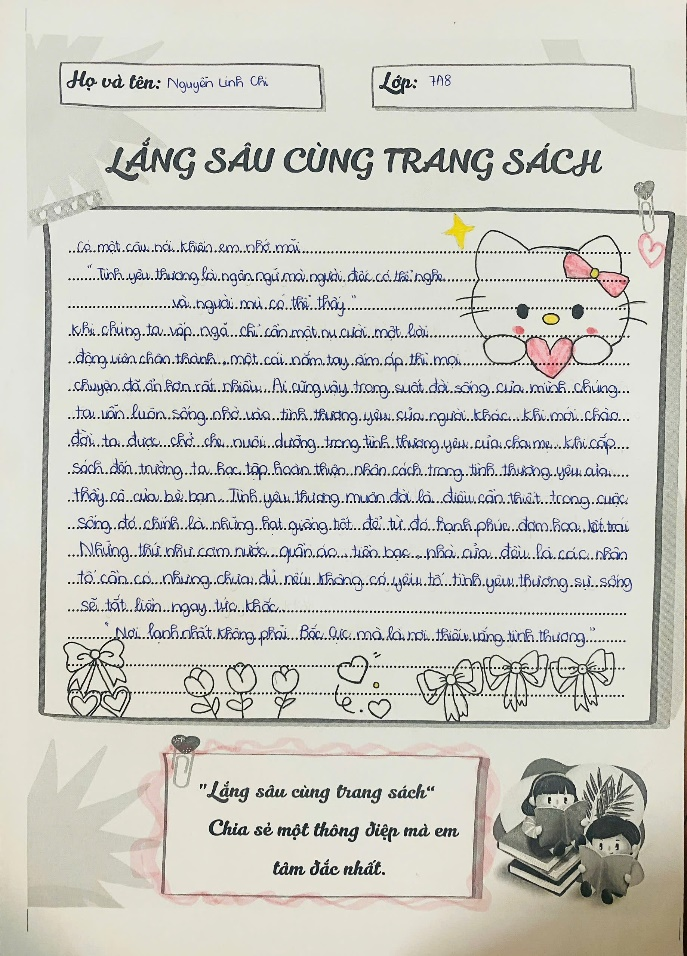 Họ và tên: Nguyễn Linh Chi
Lớp: 7A8
LẮNG SÂU CÙNG TRANG SÁCH
Có một câu nói khiến em nhớ mãi
"Tình yêu thương là ngôn ngữ mà người điếc có thể nghe
và người mù có thể thấy"
Khi chúng ta vấp ngã chỉ cần một nụ cười một lời
động viên chân thành, một cái nắm tay ấm áp thì mọi
chuyện đã ổn hơn rất nhiều. Ai cũng vậy trong suốt đời sống của mình chúng
ta vẫn luôn sống nhờ vào tình thương yêu của người khác. Khi mới chào
đời ta được chở che nuôi dưỡng trong tình thương yêu của cha mẹ. Khi cấp
sách đến trường ta học tập hoàn thiện nhân cách trong tình thương yêu của
thầy cô của bè bạn. Tình yêu thương muôn đời là điều cần thiết trong cuộc
sống đó chính là những hạt giống tốt để từ đó hạnh phúc đơm hoa kết trái
Những thứ như cơm nước, quần áo, tiền bạc, nhà cửa đều là các nhân
tố cần có nhưng chưa đủ nếu không có yếu tố tình yêu thương sự sống
sẽ tắt liền ngay tức khắc.
"Nơi lạnh nhất không phải Bắc Cực mà là nơi thiếu vắng tình thương."
"Lắng sâu cùng trang sách"
Chia sẻ một thông điệp mà em
tâm đắc nhất.